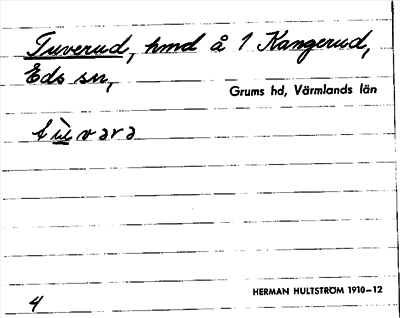 Tuverud, hmd å 1 Kangerud,
Eds sn,
Grums hd, Värmlands län
HERMAN HULTSTRÖM 1910–12
4